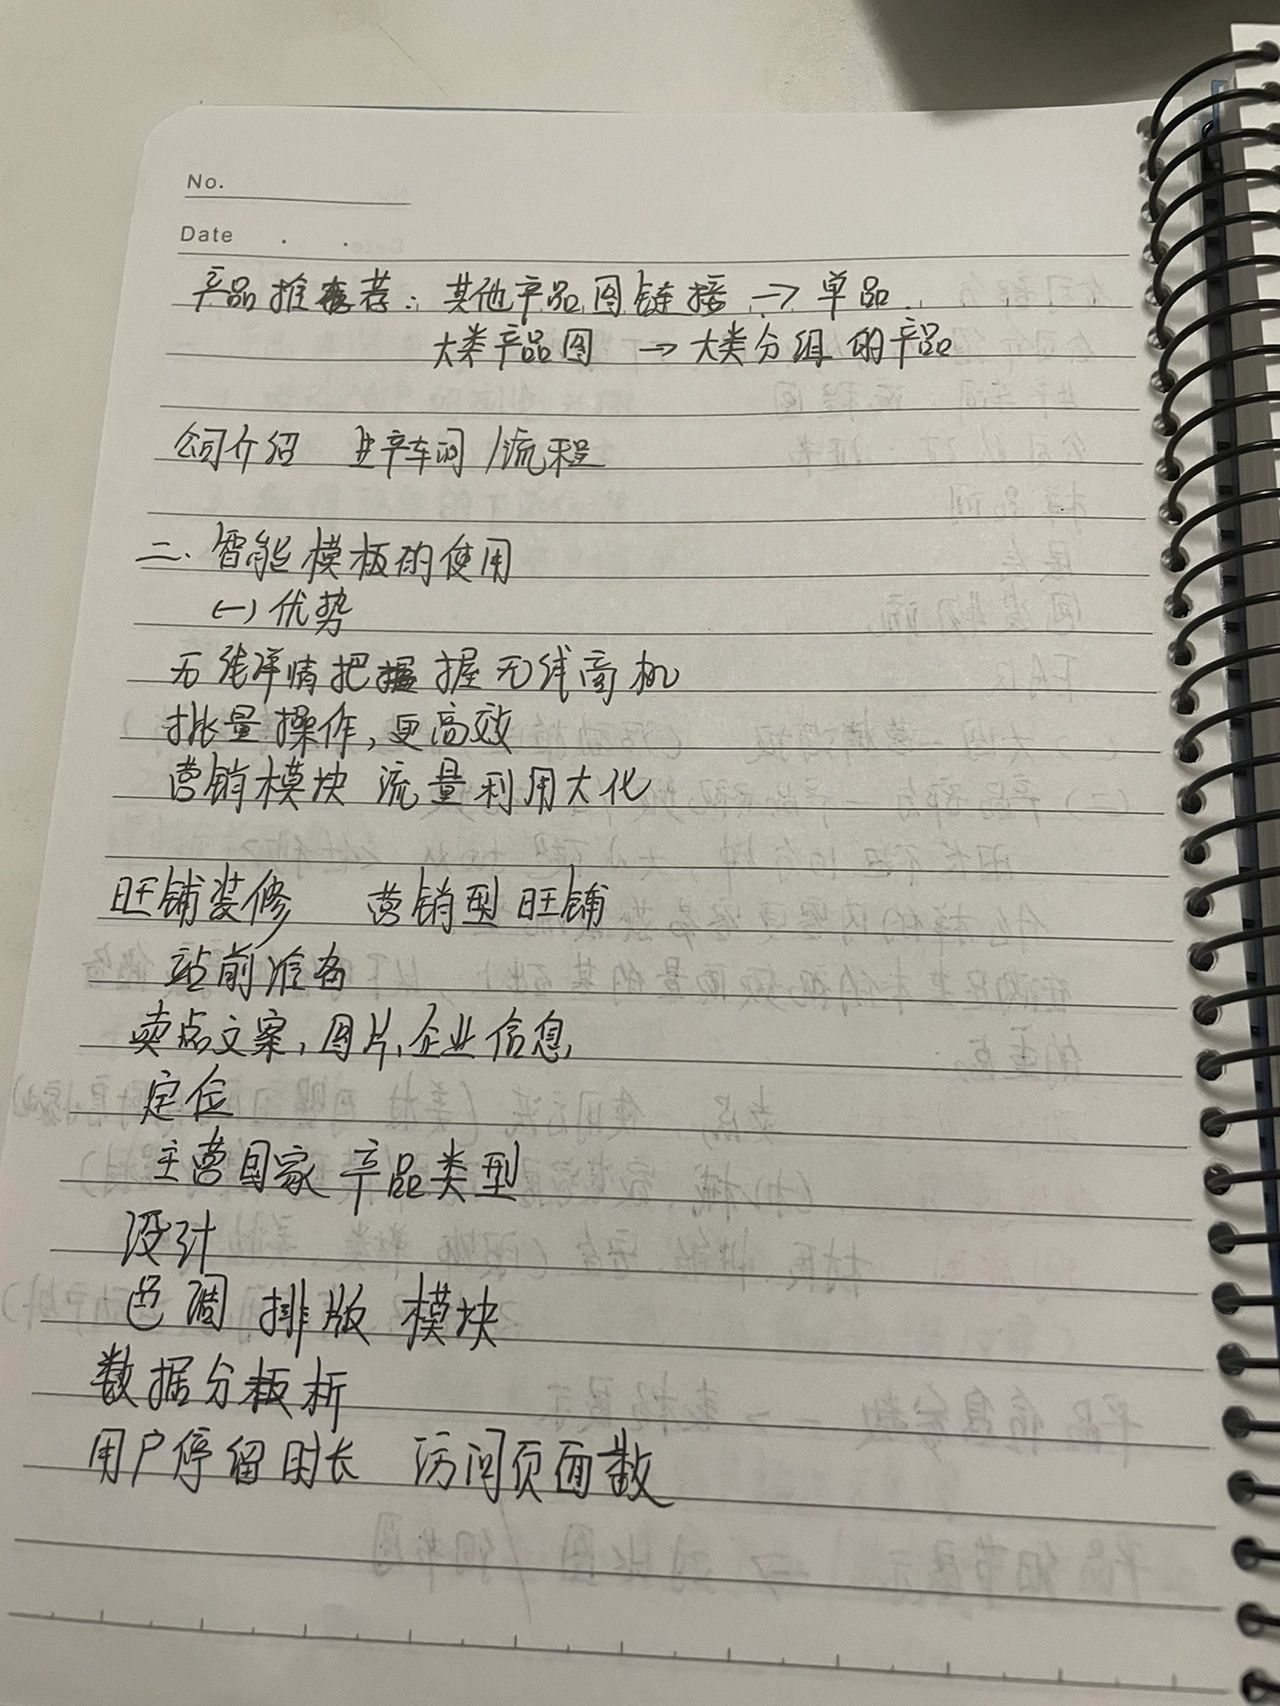 No.
Date . .
产品推荐: 其他产品图链接 → 单品
大类产品图 → 大类分组的产品
公司介绍 生产车间/流程
二. 智能模板的使用
(一) 优势
无线详情把握 握无线商机
批量操作,更高效
营销模块 流量利用大化
旺铺装修 营销型旺铺
站前准备
卖点文案,图片,企业信息,
定位
主营国家 产品类型
设计
色调 排版 模块
数据分析
用户停留时长 访问页面数